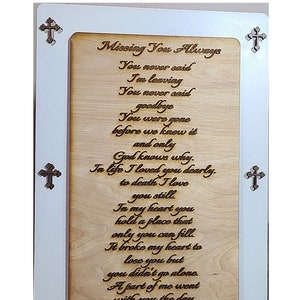 Missing You Always
You never said
I'm leaving
You never said
goodbye
You were gone
before we knew it
and only
God knows why.
In life I loved you dearly.
to death I love
you still.
In my heart you
hold a place that
only you can fill.
It broke my heart to
lose you but
you didn't go alone.
A part of me went
with you the day